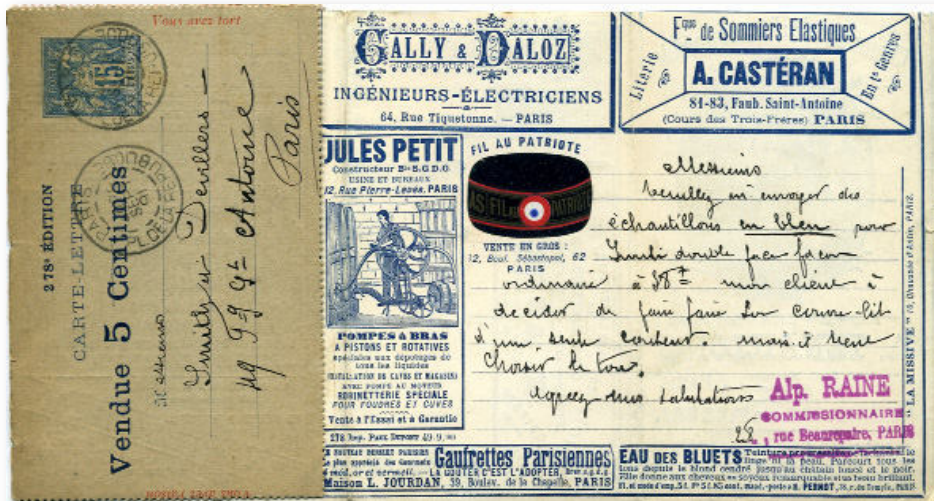 Vous avez tort
278e ÉDITION
CARTE-LETTRE
Vendue 5 Centimes
15
PARIS
Messieurs
Devillers
49 Fg St Antoine
Paris
GALLY & DALOZ
INGÉNIEURS-ÉLECTRICIENS
64, Rue Tiquetonne. — PARIS
Fque de Sommiers Elastiques
Literie
A. CASTÉRAN
En ts Genres
81-83, Faub. Saint-Antoine
(Cours des Trois-Frères) PARIS
JULES PETIT
Constructeur Bté S.G.D.G.
USINE ET BUREAUX
12, Rue Pierre-Levée, PARIS
POMPES A BRAS
A PISTONS ET ROTATIVES
spéciales aux dépotages de
tous les liquides
INSTALLATION DE CAVES ET MAGASINS
AVEC POMPE AU MOTEUR
ROBINETTERIE SPÉCIALE
POUR FOUDRES ET CUVES
Vente à l'Essai et à Garantie
FIL AU PATRIOTE
AS FIL AU PATRIOTE
VENTE EN GROS :
62, Boul. Sébastopol, 62
PARIS
Messieurs
Veuillez m'envoyer des
échantillons en bleu pour
double face façon
ordinaire à mon client à
décider de faire faire son couvre-lit
à une seule couleur. mais il veut
choisir le ton.
Agréez mes salutations
Alp. RAINE
COMMISSIONNAIRE
, rue Beaurepaire, PARIS
"LA MISSIVE"
278 Imp. PAUL DUPONT
Gaufrettes Parisiennes
LA GOUTER C'EST L'ADOPTER
Maison L. JOURDAN, 39, Boulev. de la Chapelle, PARIS
EAU DES BLUETS
tous depuis le blond cendré jusqu'au châtain foncé et le noir.
Elle donne aux cheveux un soyeux remarquable et un beau brillant.
PERNOT, rue du Temple, PARIS